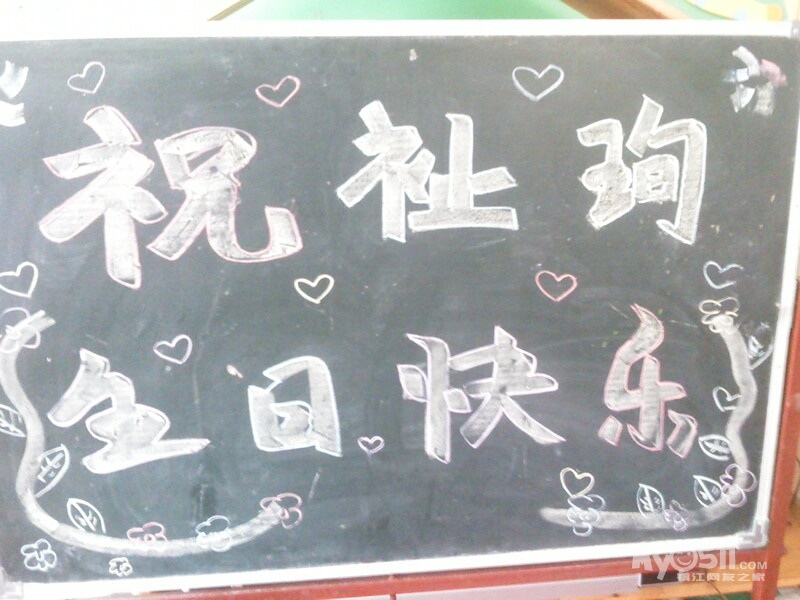 祝祉珣
生日快乐
MY0511.COM
镇江网友之家